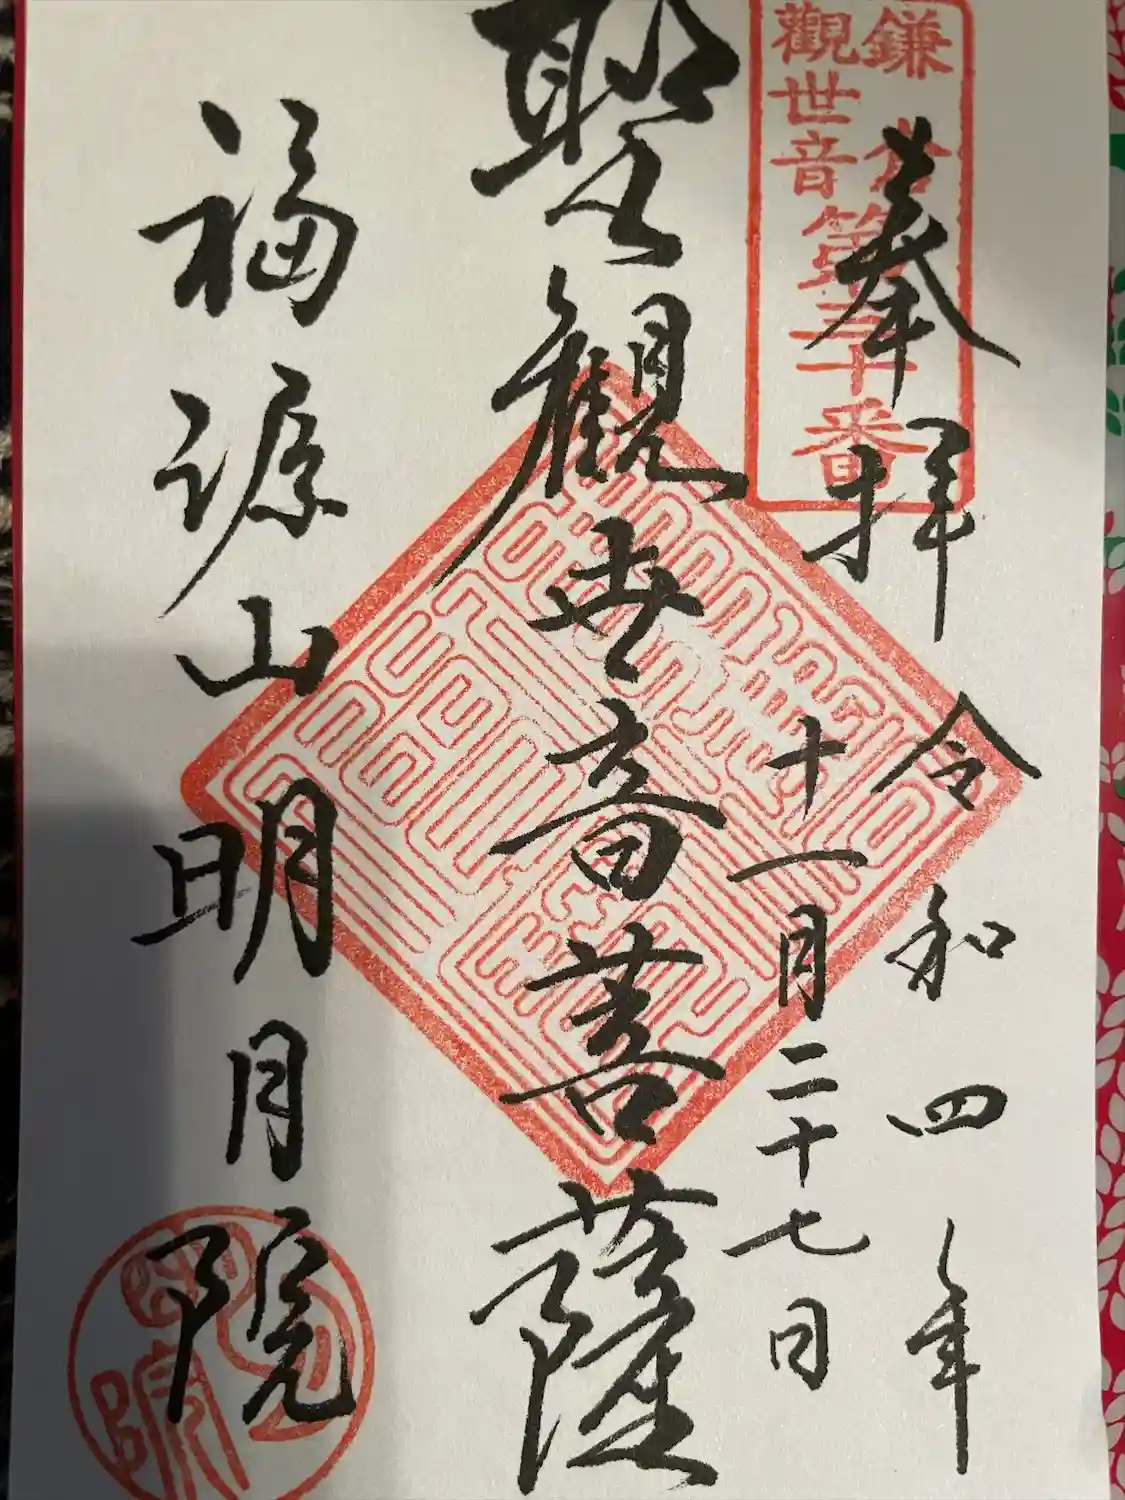 鎌倉
觀世音
第三十番
奉拝
令和四年
十一月二十七日
聖觀世音菩薩
福源山明月院